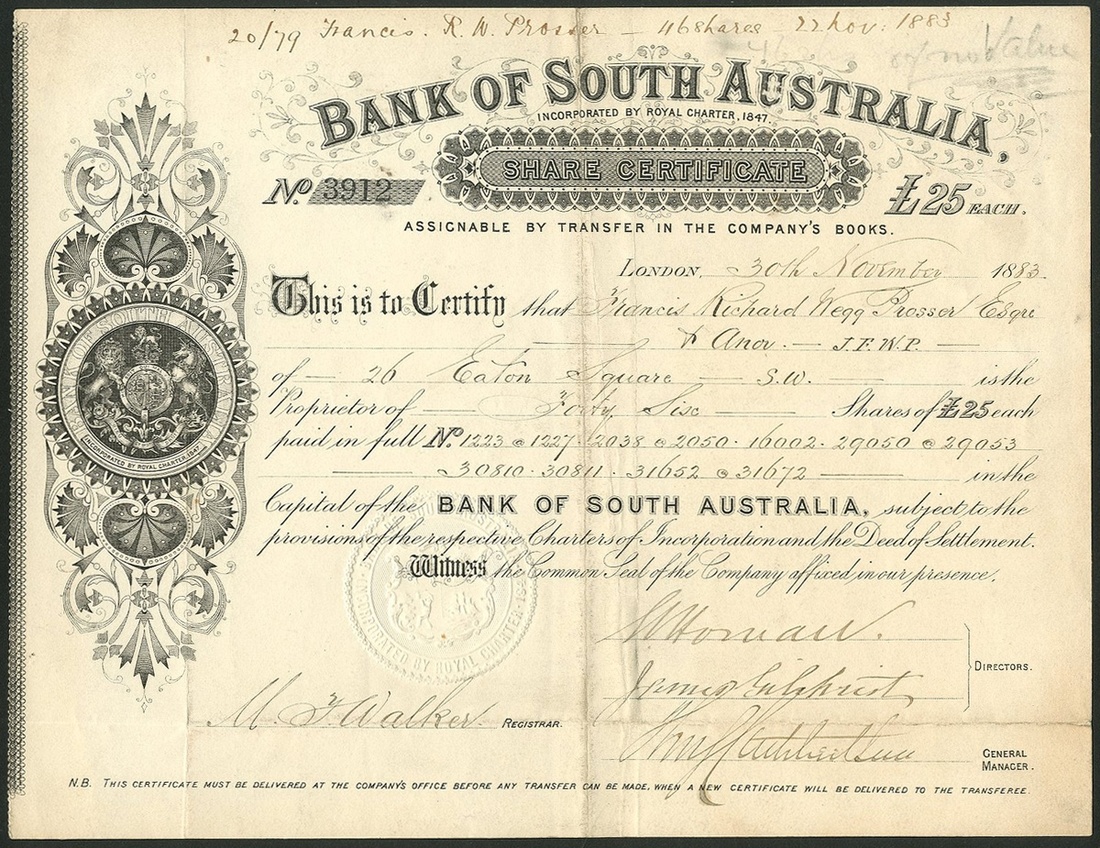 20/79 Francis. R. W. Prosser — 46 Shares — 22 Nov: 1883
of no Value
BANK OF SOUTH AUSTRALIA,
INCORPORATED BY ROYAL CHARTER, 1847.
SHARE CERTIFICATE
No. 3912
£25 EACH.
ASSIGNABLE BY TRANSFER IN THE COMPANY'S BOOKS.
LONDON, 30th November 1883.
This is to Certify that Francis Richard Wegg Prosser Esqre
& Anor. — J.F.W.P. —
of — 26 Eaton Square — S.W. — is the
Proprietor of — Forty Six — Shares of £25 each
paid in full No. 1223 @ 1227 · 2038 @ 2050 · 16002 · 29050 @ 29053
— 30810 · 30811 · 31652 @ 31672 — in the
Capital of the BANK OF SOUTH AUSTRALIA, subject to the
provisions of the respective Charters of Incorporation and the Deed of Settlement.
Witness the Common Seal of the Company affixed in our presence.
BANK OF SOUTH AUSTRALIA
INCORPORATED BY ROYAL CHARTER 1847
INCORPORATED BY ROYAL CHARTER 18
James Gilchrist
DIRECTORS.
M. F. Walker. REGISTRAR.
GENERAL
MANAGER.
N.B. THIS CERTIFICATE MUST BE DELIVERED AT THE COMPANY'S OFFICE BEFORE ANY TRANSFER CAN BE MADE, WHEN A NEW CERTIFICATE WILL BE DELIVERED TO THE TRANSFEREE.